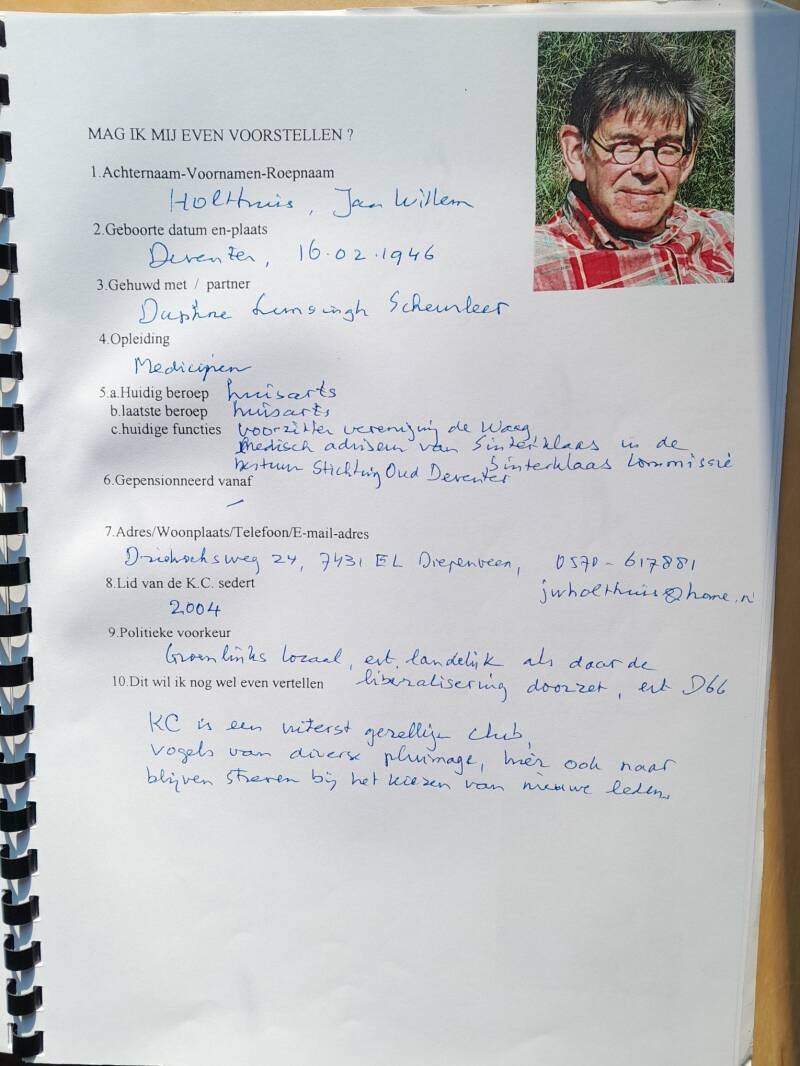 MAG IK MIJ EVEN VOORSTELLEN ?
1.Achternaam-Voornamen-Roepnaam
Holthuis, Jan Willem
2.Geboorte datum en-plaats
Deventer, 16.02.1946
3.Gehuwd met / partner
Daphne Lunsingh Scheurleer
4.Opleiding
Medicijnen
5.a.Huidig beroep huisarts
b.laatste beroep huisarts
c.huidige functies voorzitter vereniging de Waag
medisch adviseur van Sinterklaas in de
Sinterklaas Commissie
bestuur Stichting Oud Deventer
6.Gepensionneerd vanaf
-
7.Adres/Woonplaats/Telefoon/E-mail-adres
24, 7431 EL Diepenveen, 0570-617881
jwholthuis@home.nl
8.Lid van de K.C. sedert
2004
9.Politieke voorkeur
Groenlinks lokaal, en landelijk als daar de
liberalisering doorzet, en D66
10.Dit wil ik nog wel even vertellen
KC is een uiterst gezellige club,
vogels van diverse pluimage, hier ook naar
blijven streven bij het kiezen van nieuwe leden.